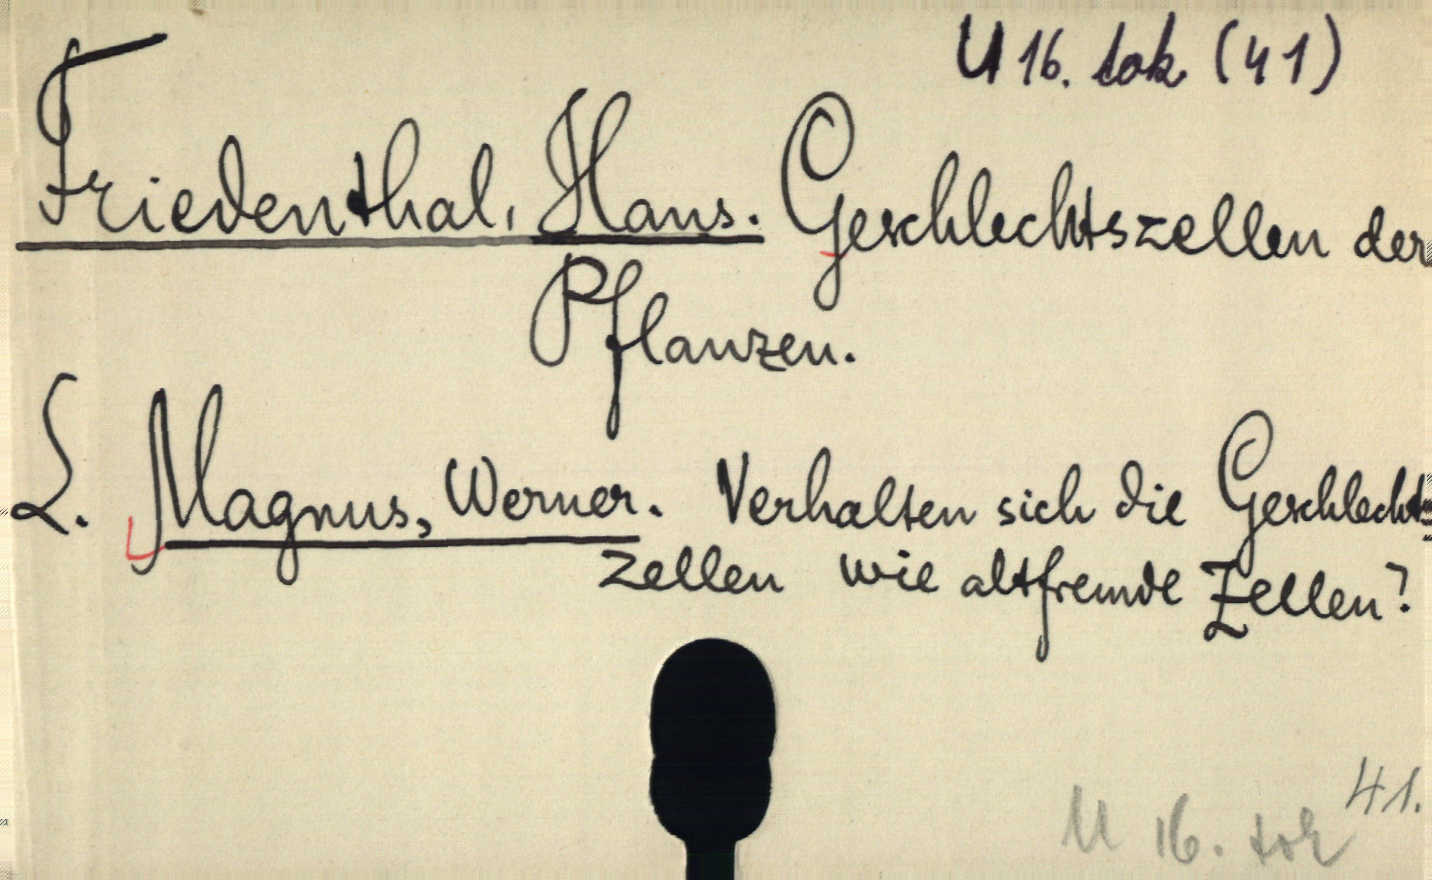 U 16. tok (41)
Friedenthal, Hans. Geschlechtszellen der
Pflanzen.
L. Magnus, Werner. Verhalten sich die Geschlechts=
zellen wie altfremde Zellen?
41.
U 16. tok